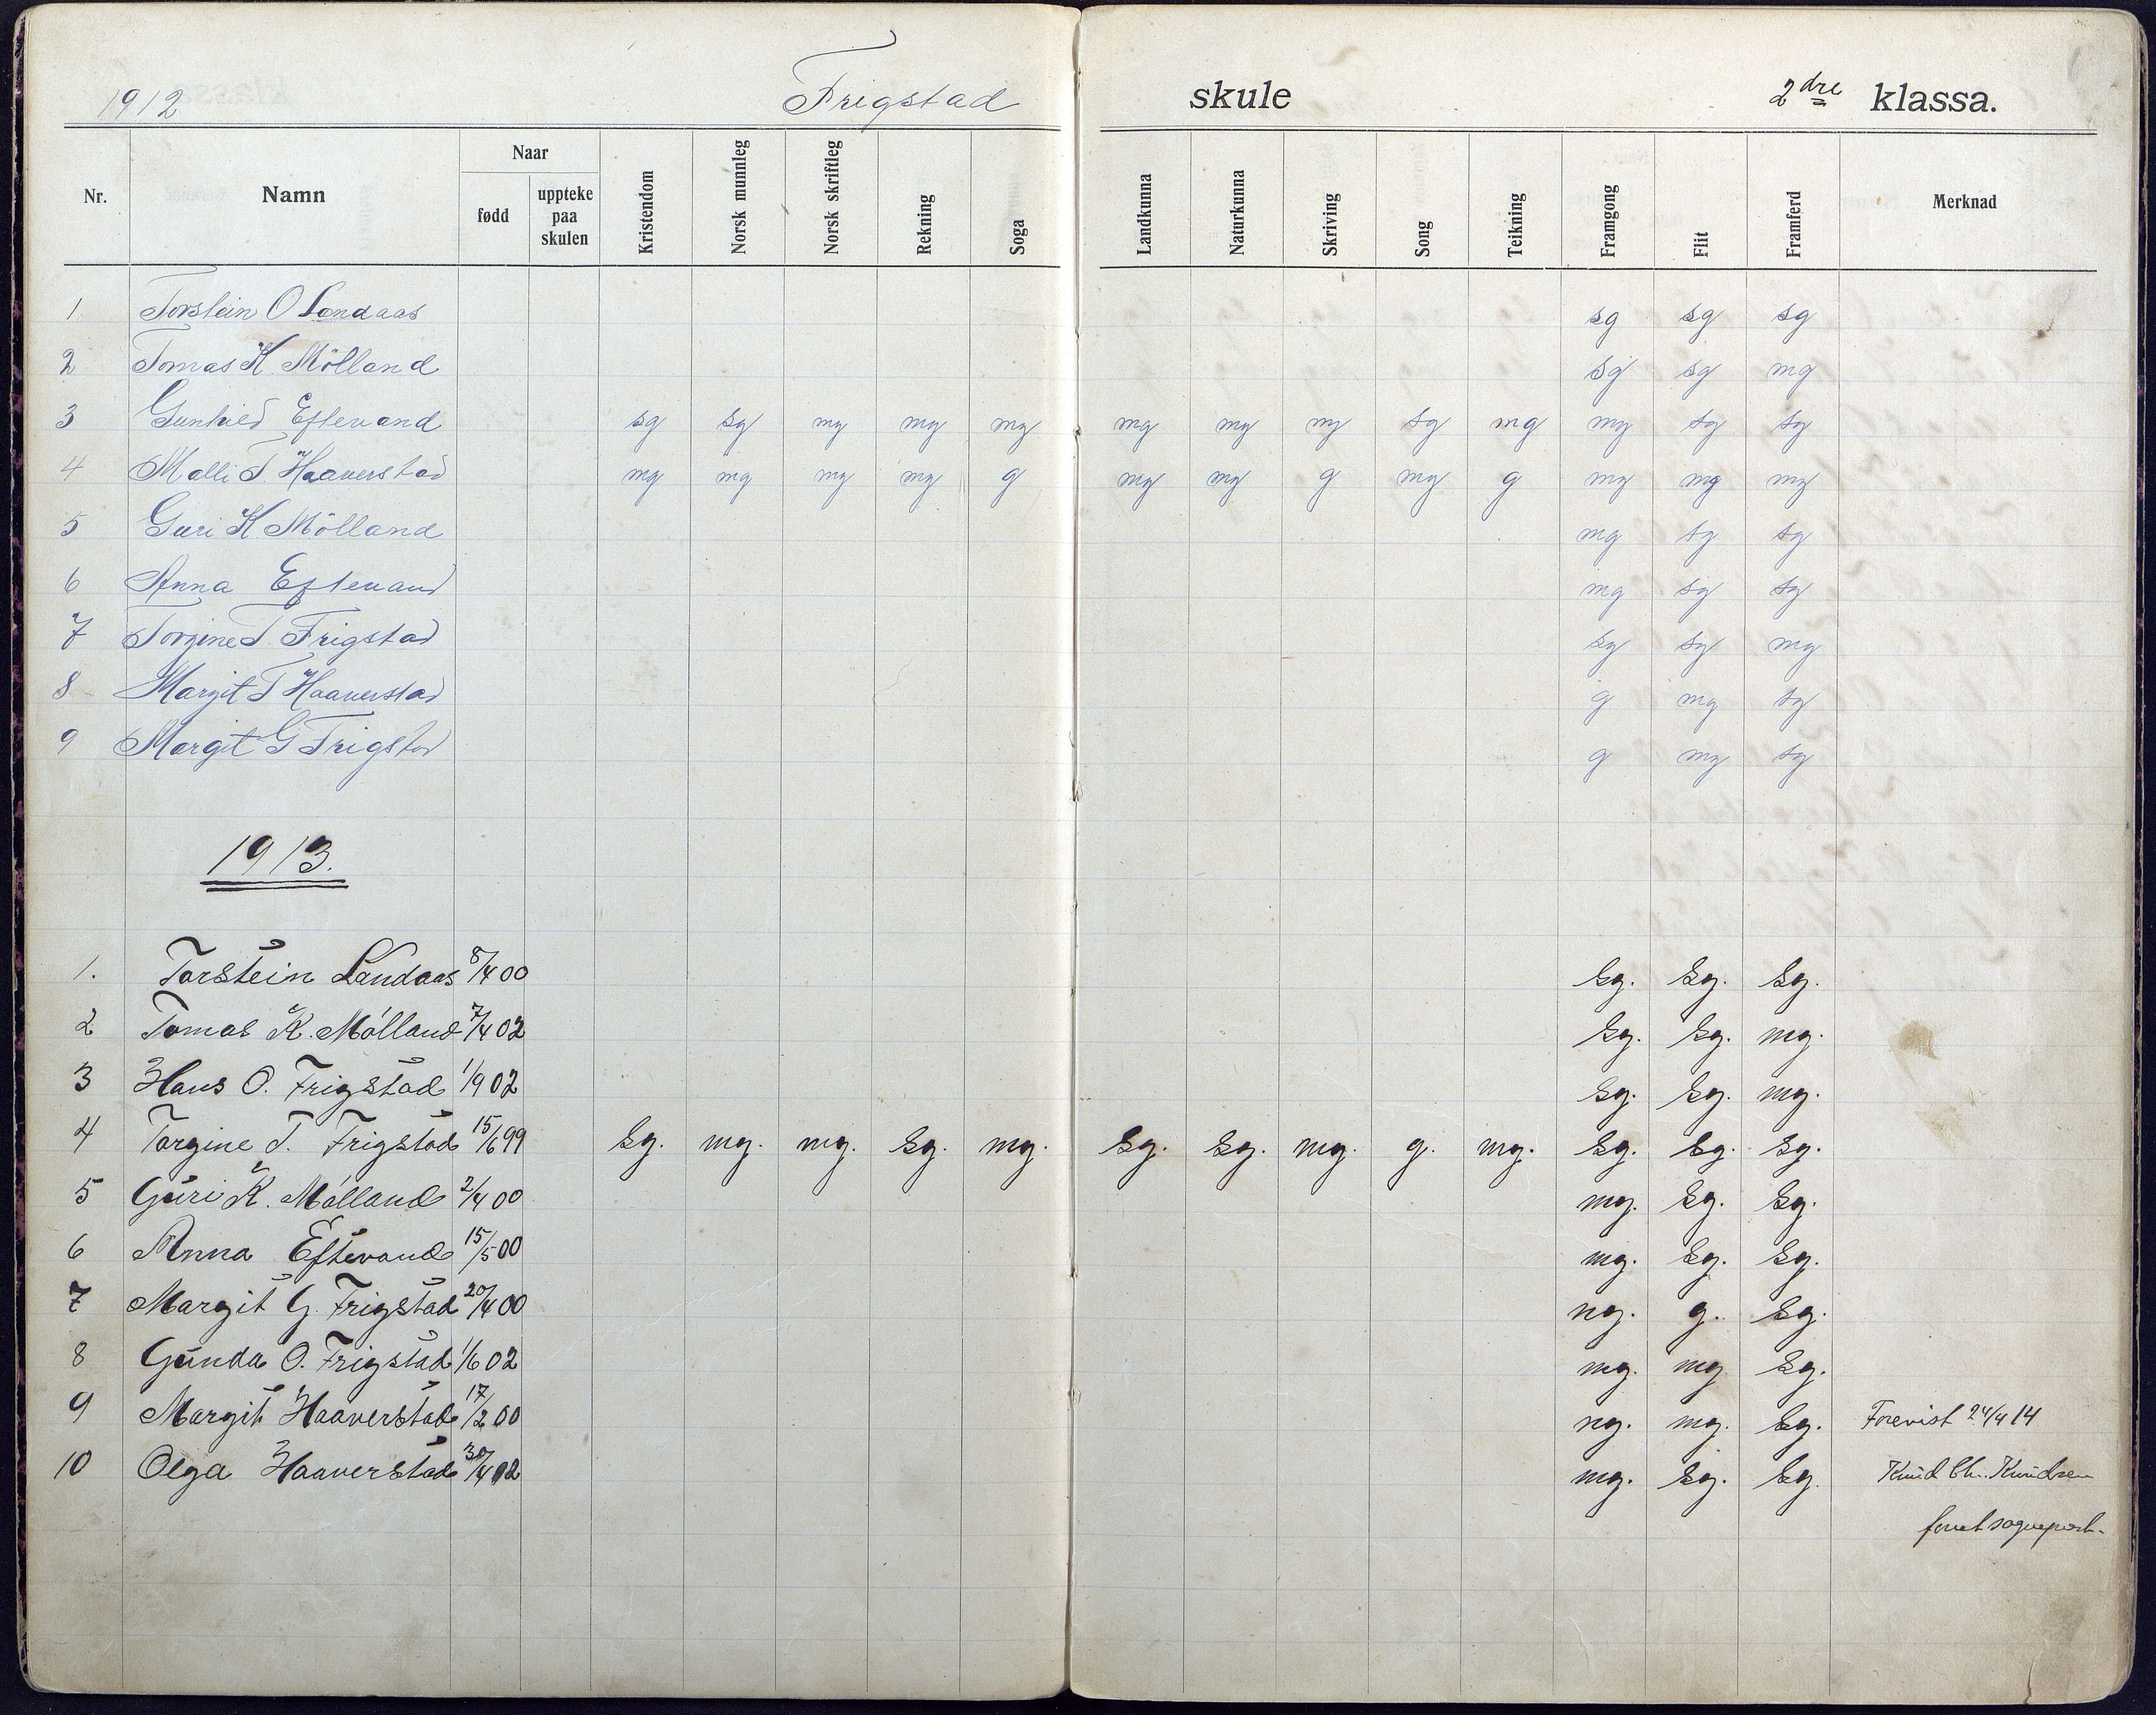 1912 Frigstad skule 2dre klassa.
Nr. Namn Naar fødd uppteke paa skulen Kristendom Norsk munnleg Norsk skriftleg Rekning Soga Landkunna Naturkunna Skriving Song Teikning Framgong Flit Framferd Merknad
1 Torstein O Landaas sg sg sg
2 Tomas K Mölland sg sg mg
3 Gunhild Eftevand sg sg mg mg mg mg mg mg sg mg mg sg sg
4 Malli T Haaverstad mg mg mg mg g mg mg g mg g mg mg mg
5 Guri K Mölland mg sg sg
6 Anna Eftevand mg sg sg
7 Torgine T. Frigstad sg sg mg
8 Margit T Haaverstad g mg sg
9 Margit G Frigstad g mg sg
1913.
1. Torstein Landaas 8/4 00 sg. sg. sg.
2 Tomas K. Mólland 7/4 02 sg. sg. mg.
3 Hans O. Frigstad 1/9 02 sg. sg. mg.
4 Torgine T. Frigstad 15/6 99 sg. mg. mg. sg. mg. sg. sg. mg. g. mg. sg. sg. sg.
5 Guri K. Mólland 2/4 00 mg. sg. sg.
6 Anna Eftevand 15/5 00 mg. sg. sg.
7 Margit G. Frigstad 20/4 00 ng. g. sg.
8 Gunda O. Frigstad 1/6 02 mg. mg. sg.
9 Margit Haaverstad 17/2 00 ng. mg. sg. Forevist 24/4 14
10 Olga Haaverstad 30/4 02 mg. sg. sg. Knud Chr. Knudsen